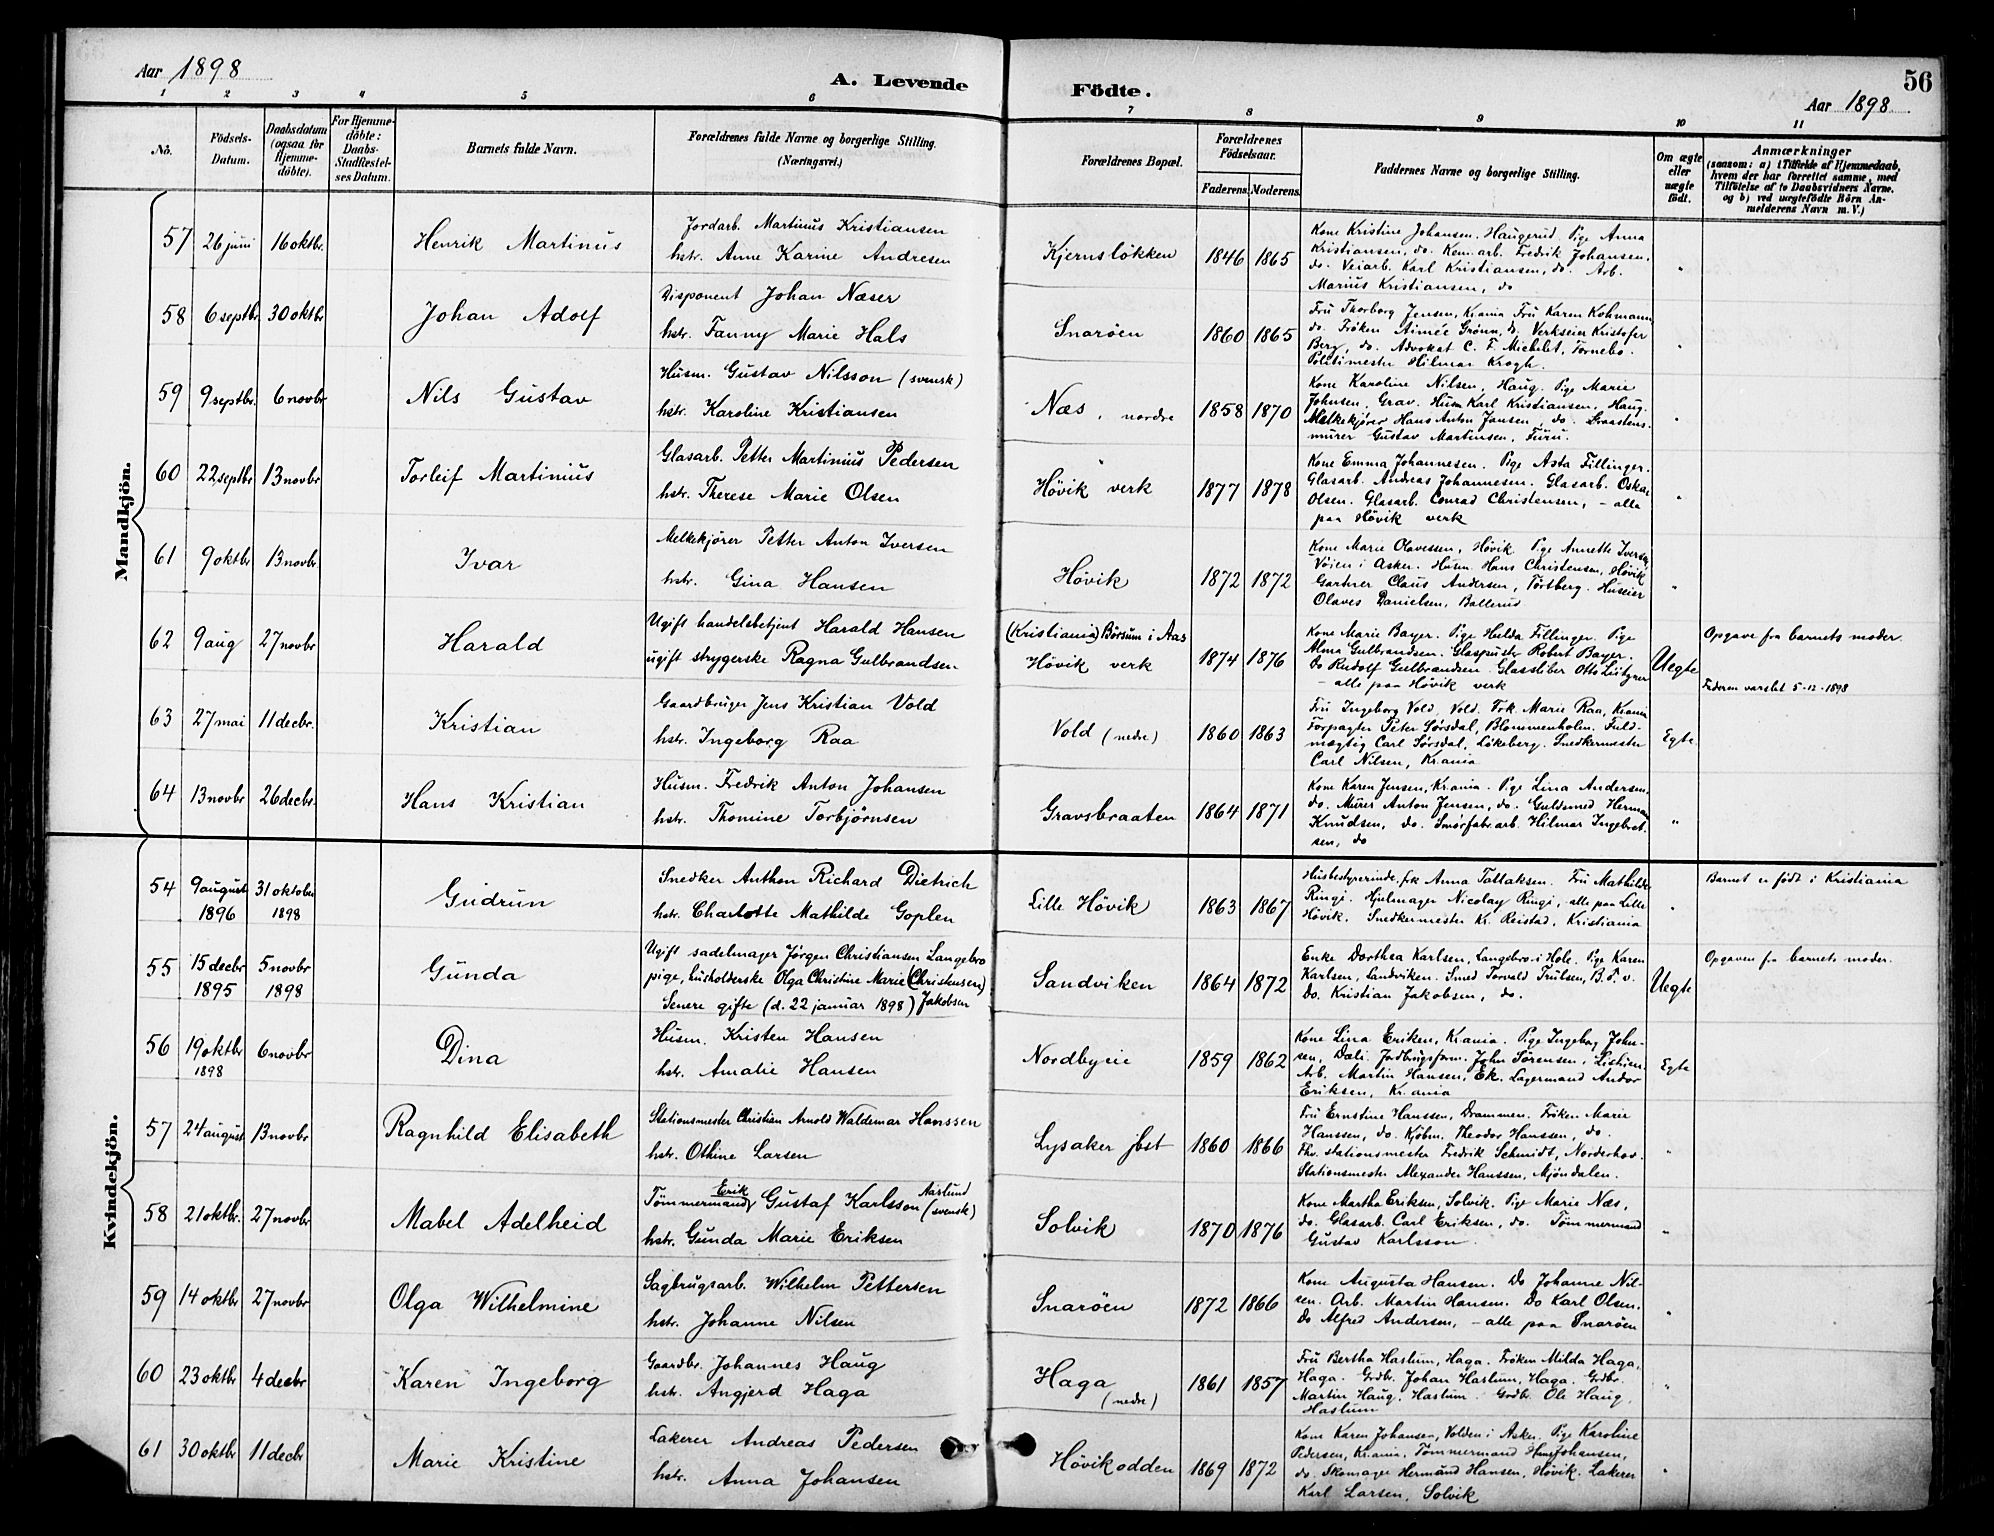 Aar 1898
A. Levende
Födte.
56
Aar 1898
1 2 3 4 5 6 7 8 9 10 11
Nô.
Födsels-
Datum.
Daabsdatum
(ogsaa for
Hjemme-
döbte).
For Hjemme-
döbte:
Daabs-
Stadfæstel-
ses Datum.
Barnets fulde Navn.
Forældrenes fulde Navne og borgerlige Stilling.
(Næringsvei.)
Forældrenes Bopæl.
Forældrenes
Födselsaar.
Faderens. Moderens.
Faddernes Navne og borgerlige Stilling.
Om ægte
eller
uægte
født.
Anmærkninger
(saasom: a) i Tilfælde af Hjemmedaab,
hvem der har forrettet samme, med
Tilföielse af to Daabsvidners Navne.
og b) ved uægtefödte Börn An-
melderens Navn m. V.)
Mandkjön.
57 26 juni 16 oktbr. Henrik Martinus
Jordarb. Martinus Kristiansen
hstr. Anne Karine Andresen
Kjernsløkken 1846 1865
Kone Kristine Johansen. Haugerud. Pige Anna
Kristiansen, do. Kem. arb. Fredrik Johansen,
do. Veiarb. Karl Kristiansen, do. Arb.
Marius Kristiansen, do
"
58 6 septbr. 30 oktbr Johan Adolf
Disponent Johan Næser
hstr. Fanny Marie Hals
Snarøen 1860 1865
Fru Thorborg Jensen, Krania Fru Karen Kohmann
do. Frøken Aimée Grønn, do. Verkseier Kristofer
Berg, do. Advokat C. F. Michelet, Tornebo.
Politimester Hilmar Krogh.
"
59 9 septbr. 6 novbr Nils Gustav
Husm. Gustav Nilsson (svensk)
hstr. Karoline Kristiansen
Næs, nordre 1858 1870
Kone Karoline Nilsen, Haug. Pige Marie
Johnsen, Grav. Husm Karl Kristiansen, Haug.
Melkekjører Hans Anton Jansen, do. Graastens-
murer Gustav Martinsen, Furu.
"
60 22 septbr 13 novbr Torleif Martinius
Glasarb. Petter Martinius Pedersen
hstr. Therese Marie Olsen
Høvik verk 1877 1878
Kone Emma Johannesen. Pige Asta Fillinger.
Glasarb. Andreas Johannesen. Glasarb. Oskar
Olsen. Glasarb. Conrad Christensen, - alle
paa Høvik verk
"
61 9 oktbr 13 novbr Ivar
Melkekjører Petter Anton Iversen
hstr. Gina Hansen
Høvik 1872 1872
Kone Marie Olavessen, Høvik. Pige Annette Iversen,
Vøien i Asker. Husm. Hans Christensen, Høvik
Gartner Claus Andersen, Tortberg. Huseier
Olaves Danielsen, Ballerud
"
62 9 aug 27 novbr Harald
Ugift handelsbetjent Harald Hansen
ugift strygerske Ragna Gulbrandsen
(Kristiania) Børsum i Aas
Høvik verk 1874 1876
Kone Marie Bayer. Pige Hulda Fillinger. Pige
Alma Gulbrandsen. Glaspuster Robert Bayer.
Do Rudolf Gulbrandsen. Glassliber Otto
- alle paa Høvik verk
Uegte
Opgave fra barnets moder.
Faderen varslet 5-12-1898
63 27 mai 11 decbr. Kristian
Gaardbruger Jens Kristian Vold
hstr. Ingeborg Raa
Vold (nedre) 1860 1863
Fru Ingeborg Vold, Vold. Frk. Marie Raa, Krania
Forpagter Peter Sørsdal, Blommenholm. Fuld-
mægtig Carl Sørsdal, Løkeberg. Snedkermester
Carl Nilsen, Krania
Egte
64 13 novbr 26 decbr. Hans Kristian
Husm. Fredrik Anton Johansen
hstr. Thomine Torbjørnsen
Gravsbraaten 1864 1871
Kone Karen Jensen, Krania. Pige Lina Andersen,
do. Murer Anton Jensen, do. Guldsmed Herman
Knudsen, do. Smørfabr.arb. Hilmar Ingebret-
sen, do
"
Kvindekjön.
54 9 august 1896 31 oktober 1898 Gudrun
Snedker Anthon Richard Dietrich
hstr. Charlotte Mathilde Goplen
Lille Høvik 1863 1867
Husbestyrerinde, frk Anna Tallaksen. Fru Mathilde
Ringi. Hjulmager Nicolay Ringi, alle paa Lille
Høvik. Snedkermester Kr. Reistad, Kristiania
"
Barnet er født i Kristiania
55 15 decbr 1895 5 novbr 1898 Gunda
Ugift sadelmager Jørgen Christiansen Langebro
pige, husholderske Olga Christine Marie (Christensen)
Senere gifte (d. 22 januar 1898) Jakobsen
Sandviken 1864 1872
Enke Dorthea Karlsen, Langebro i Hole. Pige Karen
Karlsen, Sandviken. Smed Torvald Trulsen, B. T. v.
Do. Kristian Jakobsen, do.
Uegte
Opgaven fra barnets moder.
56 19 oktbr 1898 6 novbr Dina
Husm. Kristen Hansen
hstr. Amalie Hansen
Nordbyeie 1859 1862
Kone Lina Eriken, Krania. Pige Ingeborg John-
sen, Dæli. Jordbrugsform. John Sørensen,
Arb. Martin Hansen, Ek. Lagermand Andor
Eriksen, Krania
Egte
57 24 august 13 novbr Ragnhild Elisabeth
Stationsmester Christian Arnold Waldemar Hanssen
hstr. Othine Larsen
Lysaker jbst 1860 1866
Fru Ernstine Hanssen, Drammen. Frøken Marie
Hanssen, do. Kjøbm. Theodor Hanssen, do.
Fhv. stationsmester Fredrik Schmidt, Norderhov.
Stationsmester Alexander Hanssen, Mjøndalen.
"
58 21 oktbr. 27 novbr Mabel Adelheid
Tømmermand Erik Gustaf Karlsson Aaslund (svensk)
hstr. Gunda Marie Eriksen
Solvik 1870 1876
Kone Martha Eriksen, Solvik. Pige Marie Næs,
do. Glasarb. Carl Eriksen, do. Tømmermand
Gustav Karlsson.
"
59 14 oktbr 27 novbr Olga Wilhelmine
Sagbrugsarb. Wilhelm Pettersen
hstr. Johanne Nilsen
Snarøen 1872 1866
Kone Augusta Hansen. Do Johanne Nil-
sen. Arb. Martin Hansen. Do Karl Olsen.
Do Alfred Andersen, - alle paa Snarøen
"
60 23 oktbr 4 decbr Karen Ingeborg
Gaardbr. Johannes Haug
hstr. Angjerd Haga
Haga (nedre) 1861 1857
Fru Bertha Haslum, Haga. Frøken Milda Haga,
Haga. Grdbr. Johan Haslum, Haga. Grdbr.
Martin Haug, Haslum. Grdbr. Ole Haug,
Haslum
"
61 30 oktbr 11 decbr Marie Kristine
Lakerer Andreas Pedersen
hstr. Anna Johansen
Høvikodden 1869 1872
Kone Karen Johansen, Volden i Asker. Pige Karoline
Pedersen, Krania. Tømmermand Hans Johansen,
do. Skomager Hermand Hansen, Høvik. Lakerer
Karl Larsen, Solvik
"